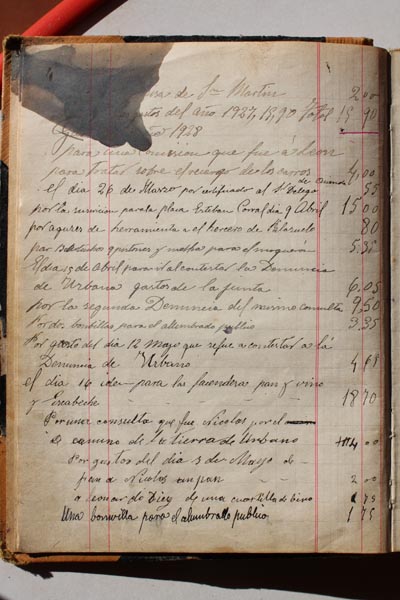 de Sn Martin 2 00
del año 1927, 13,90 Total 15 90
1928
para una comision que fue á Leon
para tratar sobre el recargo de los carros 4,00
el dia 26 de Marzo por certificado al Sr Delego de Hacienda 55
por la para la plaza Esteban Corral dia 9 Abril 15 00
por de herramienta a el herrero de 80
par para el 5,35
El dia 15 de Abril para ir al contestar la Denuncia
de Urbano gastos de la junta 6.05
por la segunda Denuncia del mismo consulta 9,50
Por dos bombillas para el alumbrado publio 3.35
Por gasto del dia 12 mayo que se fue a contestar a lá
Denuncia de Urbano 4,68
el dia 14 de para la facendera pan y vino
y Escabeche 18 70
Por una consulta que fue Nicolas por el
camino de la tierra de Urbano 4 00
Por gastos del dia 3 de Mayo de
pan a Nicolas un pan 2 00
a Leonar de Diez de una cuartilla de bino 1 75
Una bonvilla para el alumbrallo publico 1 75